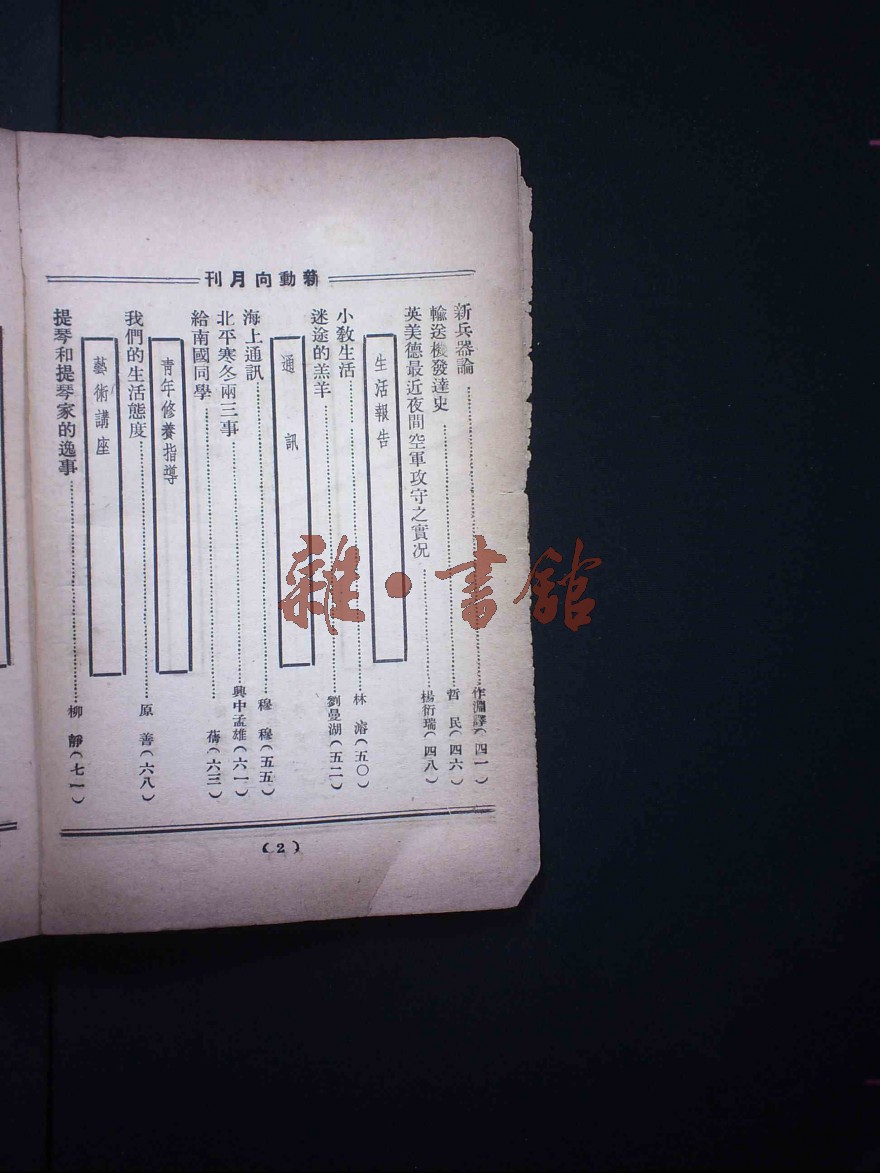 新動向月刊
新兵器論……作瀰譯(四一)
輸送機發達史……哲民(四六)
英美德最近夜間空軍攻守之實况……楊衍瑞(四八)
生活報告
小教生活……林濬(五〇)
迷途的羔羊……劉曼湖(五二)
通訊
海上通訊……穆穆(五五)
北平寒冬兩三事……興中孟雄(六一)
給南國同學……蒨(六三)
青年修養指導
我們的生活態度……原善(六八)
藝術講座
提琴和提琴家的逸事……柳靜(七一)
(2)
雜·書館